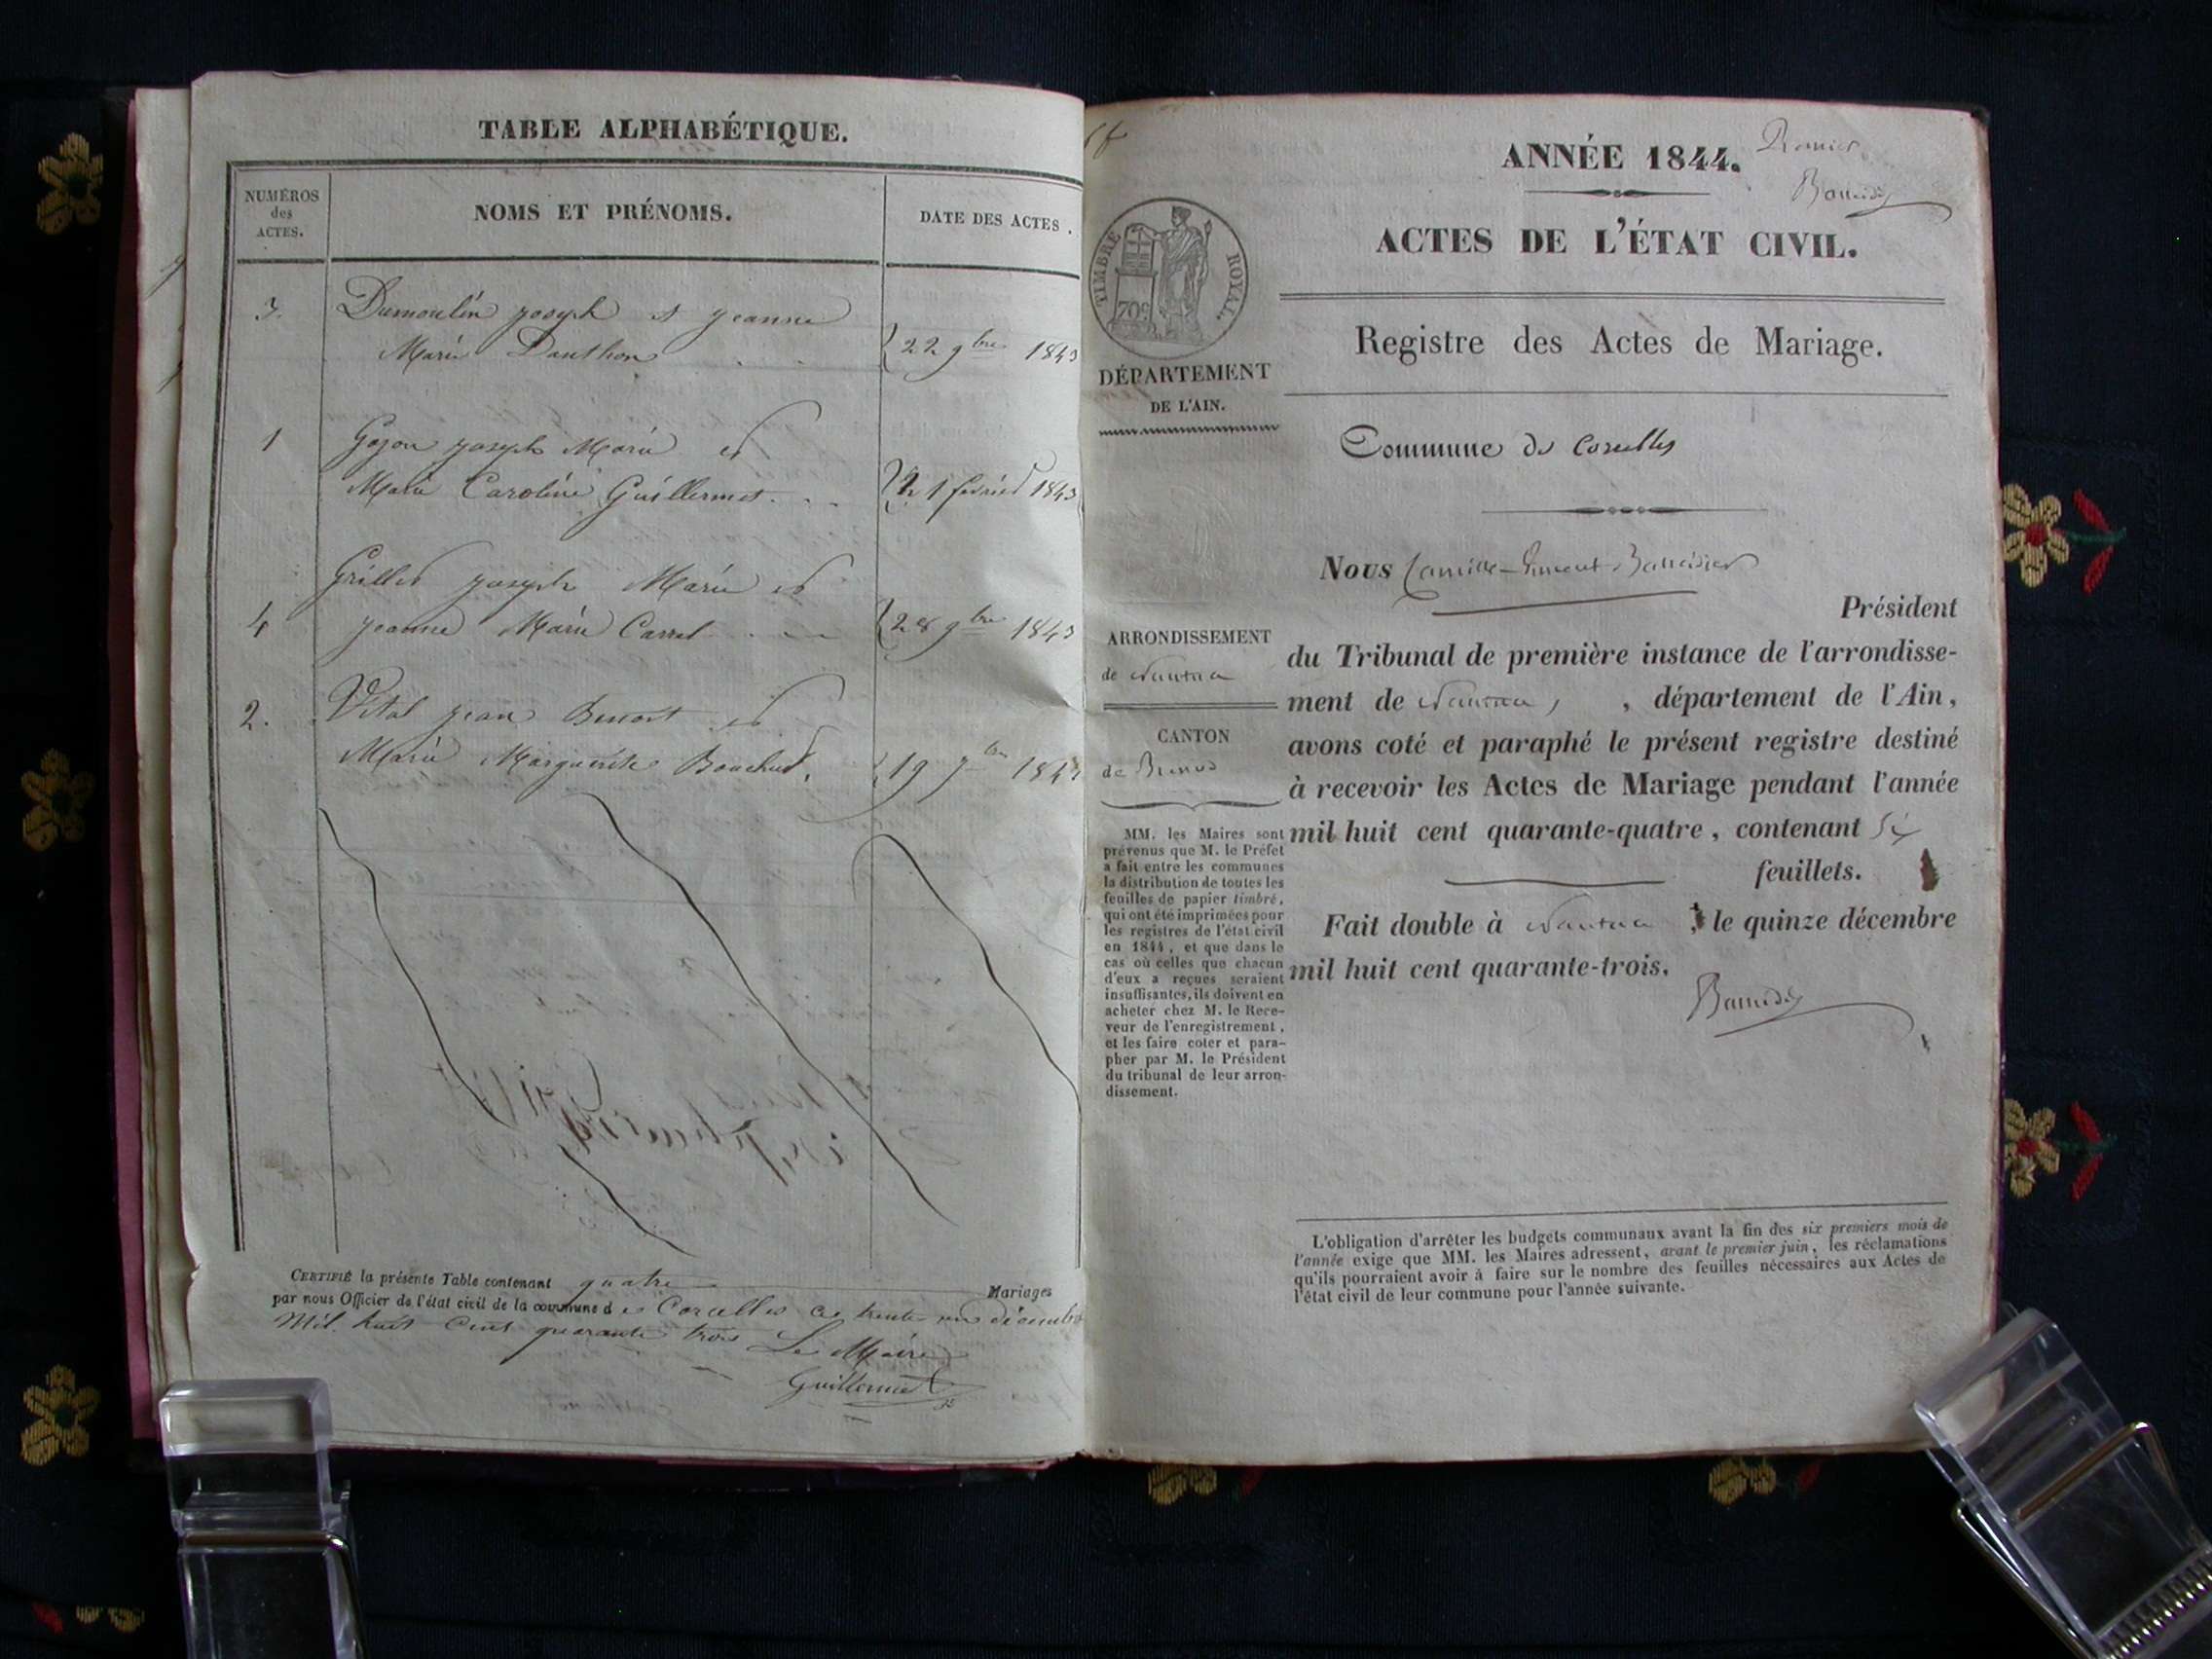 TABLE ALPHABÉTIQUE.
NUMÉROS
des
ACTES.
NOMS ET PRÉNOMS.
DATE DES ACTES.
3. Dumoulin joseph et jeanne
Marie Dauthon 22 9bre 1843
1 Gozon joseph Marie et
Marie Caroline Guillermet 21 février 1843
Grillet joseph Marie et
4 jeanne Marie Carrel 28 9bre 1843
2. Vital jean Benoit et
Marie Marguerite Bouchet. 19 7bre 1843
CERTIFIÉ la présente Table contenant quatre Mariages
par nous Officier de l'état civil de la commune de Corcelles ce trente un décembre
Mil huit cent quarante trois Le Maire
Guillermet
ANNÉE 1844.
Premier
ACTES DE L'ÉTAT CIVIL.
TIMBRE ROYAL.
70c
Registre des Actes de Mariage.
DÉPARTEMENT
DE L'AIN.
Commune de Corcelles
Nous Camille
Président
ARRONDISSEMENT
de Nantua
CANTON
de Brenod
du Tribunal de première instance de l'arrondisse-
ment de Nantua, , département de l'Ain,
avons coté et paraphé le présent registre destiné
à recevoir les Actes de Mariage pendant l'année
mil huit cent quarante-quatre, contenant six
feuillets.
Fait double à Nantua, le quinze décembre
mil huit cent quarante-trois.
MM. les Maires sont
prévenus que M. le Préfet
a fait entre les communes
la distribution de toutes les
feuilles de papier timbré,
qui ont été imprimées pour
les registres de l'état civil
en 1844, et que dans le
cas où celles que chacun
d'eux a reçues seraient
insuffisantes, ils doivent en
acheter chez M. le Rece-
veur de l'enregistrement,
et les faire coter et para-
pher par M. le Président
du tribunal de leur arron-
dissement.
L'obligation d'arrêter les budgets communaux avant la fin des six premiers mois de
l'année exige que MM. les Maires adressent, avant le premier juin, les réclamations
qu'ils pourraient avoir à faire sur le nombre des feuilles nécessaires aux Actes de
l'état civil de leur commune pour l'année suivante.